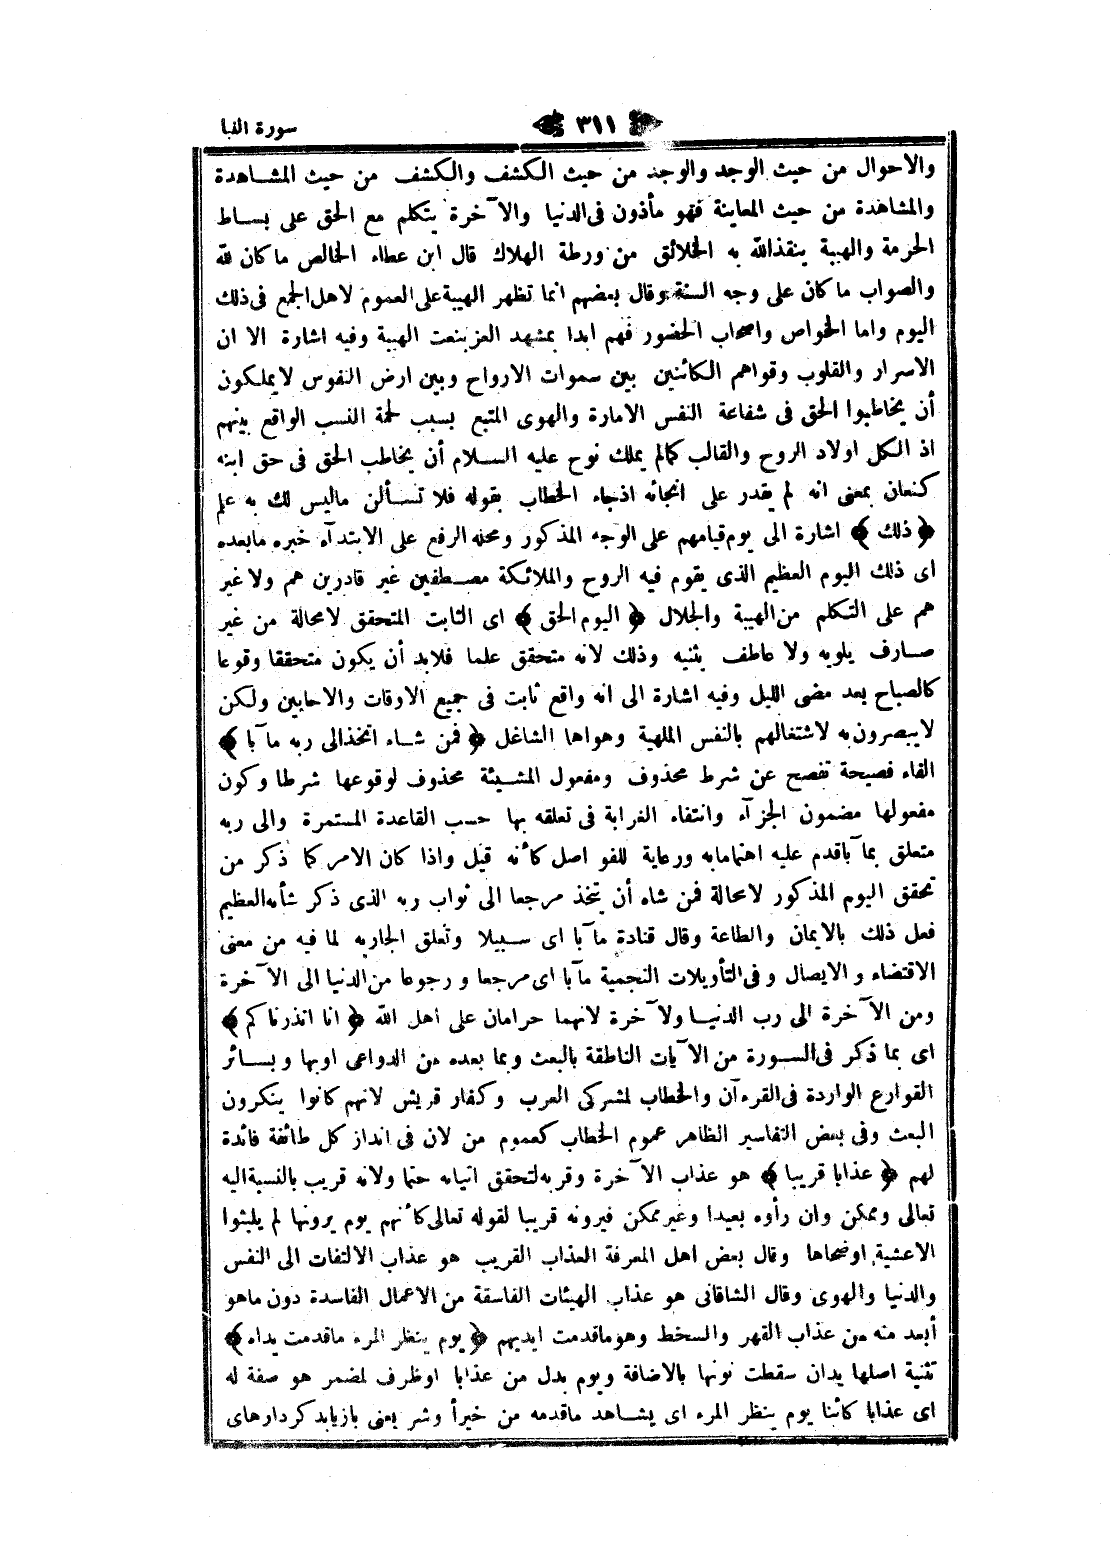 سورة النبا
٣١١
والاحوال من حيث الوجد والوجد من حيث الكشف والكشف من حيث المشاهدة
والمشاهدة من حيث المعاينة فهو مأذون فى الدنيا والآخرة يتكلم مع الحق على بساط
الحرمة والهيبة ينقذالله به الخلائق من ورطة الهلاك قال ابن عطاء الخالص ما كان لله
والصواب ما كان على وجه السنة وقال بعضهم انما تظهر الهيبة على العموم لاهل الجمع فى ذلك
اليوم واما الخواص واصحاب الحضور فهم ابدا بمشهد العز بنعت الهيبة وفيه اشارة الا ان
الاسرار والقلوب وقواهم الكائنين بين سموات الارواح وبين ارض النفوس لايملكون
أن يخاطبوا الحق فى شفاعة النفس الامارة والهوى المتبع بسبب لحمة النسب الواقع بينهم
اذ الكل اولاد الروح والقالب كمالم يملك نوح عليه السلام أن يخاطب الحق فى حق ابنه
كنعان بمعنى انه لم يقدر على انجائه اذجاء الخطاب بقوله فلا تسألن ماليس لك به علم
﴿ ذلك ﴾ اشارة الى يوم قيامهم على الوجه المذكور ومحله الرفع على الابتدآء خبره مابعده
اى ذلك اليوم العظيم الذى يقوم فيه الروح والملائكة مصطفين غير قادرين هم ولا غير
هم على التكلم من الهيبة والجلال ﴿ اليوم الحق ﴾ اى الثابت المتحقق لامحالة من غير
صارف يلويه ولا عاطف يثنيه وذلك لانه متحقق علما فلابد أن يكون متحققا وقوعا
كالصباح بعد مضى الليل وفيه اشارة الى انه واقع ثابت فى جميع الاوقات والاحايين ولكن
لايبصرون به لاشتغالهم بالنفس الملهية وهواها الشاغل ﴿ فمن شاء اتخذالى ربه مآبا ﴾
الفاء فصيحة تفصح عن شرط محذوف ومفعول المشيئة محذوف لوقوعها شرطا وكون
مفعولها مضمون الجزآء وانتفاء الغرابة فى تعلقه بها حسب القاعدة المستمرة والى ربه
متعلق بمآباقدم عليه اهتمامابه ورعاية للفو اصل كأنه قيل واذا كان الامر كما ذكر من
تحقق اليوم المذكور لامحالة فمن شاء أن يتخذ مرجعا الى ثواب ربه الذى ذكر شأنه العظيم
فعل ذلك بالايمان والطاعة وقال قتادة مآبا اى سبيلا وتعلق الجاربه لما فيه من معنى
الاقتضاء والايصال وفى التأويلات النجمية مآبا اى مرجعا ورجوعا من الدنيا الى الآخرة
ومن الآخرة الى رب الدنيا ولآخرة لانهما حرامان على اهل الله ﴿ انا انذرناكم ﴾
اى بما ذكر فى السورة من الآيات الناطقة بالبعث وبما بعده من الدواعى اوبها وبسائر
القوارع الواردة فى القرءآن والخطاب لمشركى العرب وكفار قريش لانهم كانوا ينكرون
البعث وفى بعض التفاسير الظاهر عموم الخطاب كعموم من لان فى انذار كل طائفة فائدة
لهم ﴿ عذابا قريبا ﴾ هو عذاب الآخرة وقربه لتحقق اتيانه حتما ولانه قريب بالنسبة اليه
تعالى وممكن وان رأوه بعيدا وغير ممكن فيرونه قريبا لقوله تعالى كأنهم يوم يرونها لم يلبثوا
الاعشية اوضحاها وقال بعض اهل المعرفة العذاب القريب هو عذاب الالتفات الى النفس
والدنيا والهوى وقال القاشانى هو عذاب الهيئات الفاسقة من الاعمال الفاسدة دون ماهو
أبعد منه من عذاب القهر والسخط وهوماقدمت ايديهم ﴿ يوم ينظر المرء ماقدمت يداه ﴾
تثنية اصلها يدان سقطت نونها بالاضافة ويوم بدل من عذابا اوظرف لمضمر هو صفة له
اى عذابا كائنا يوم ينظر المرء اى يشاهد ماقدمه من خيرأ وشر يعنى بازيابد كردارهاى